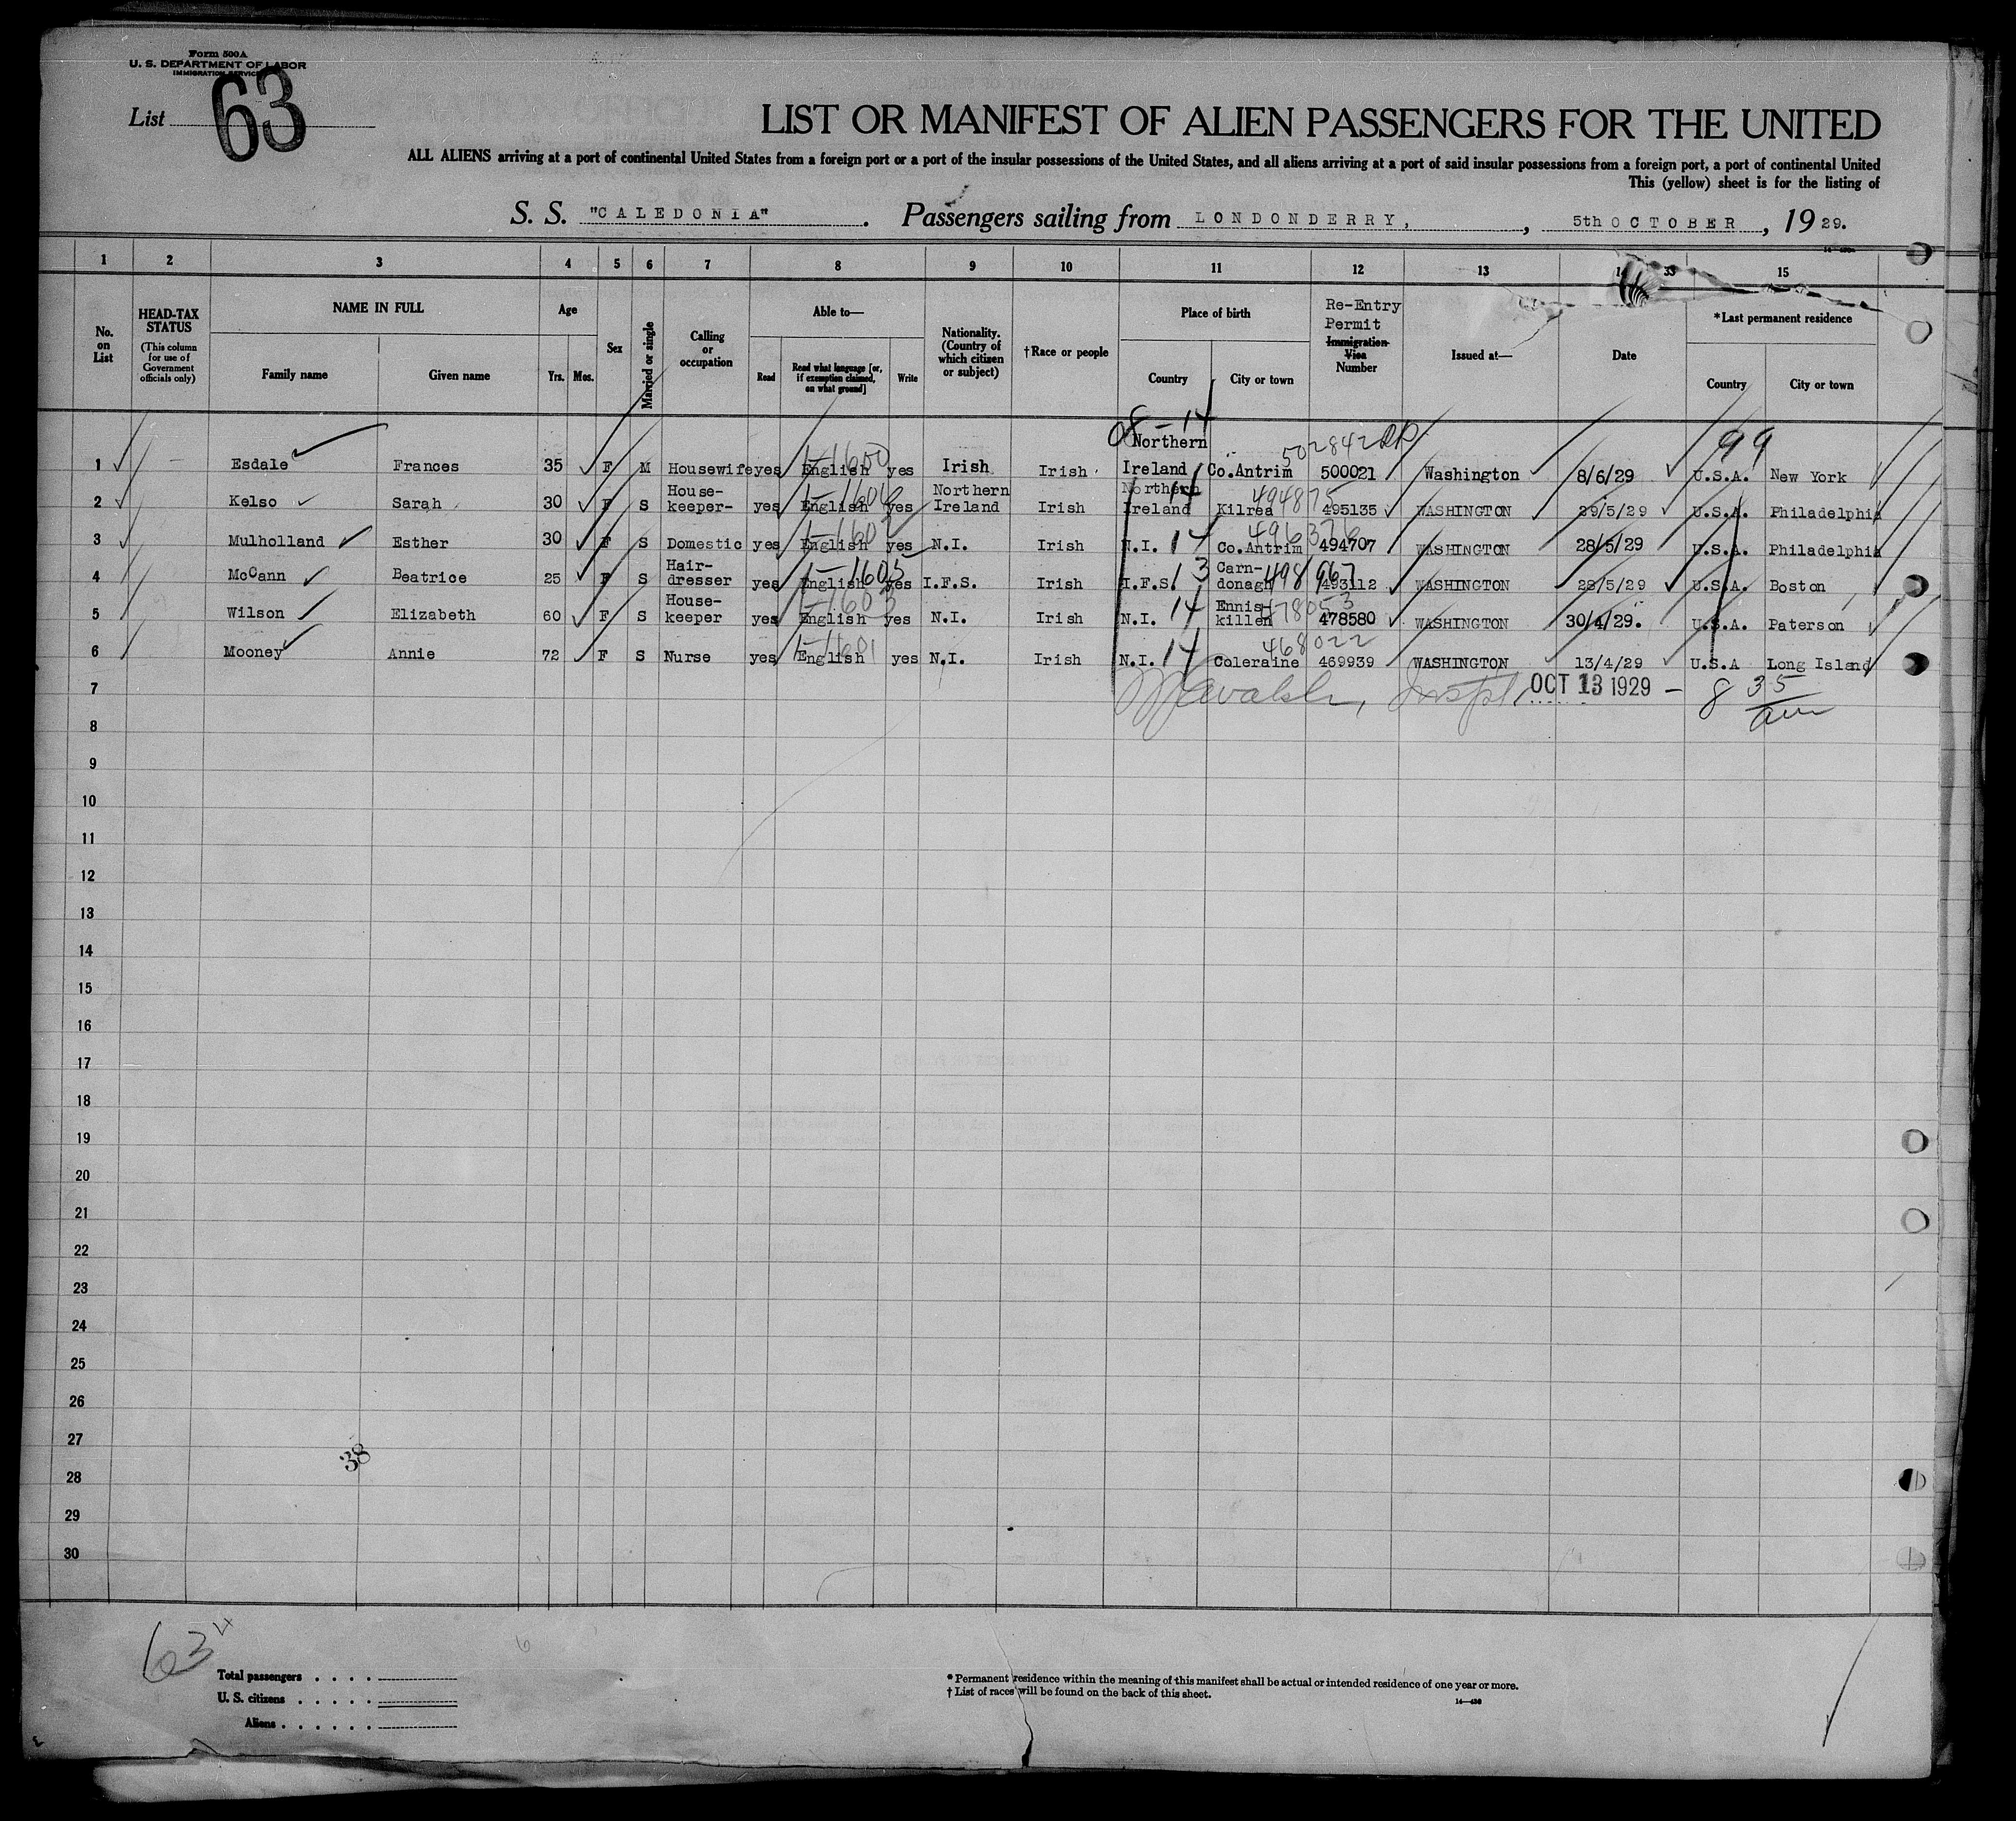 Form 500A
U. S. DEPARTMENT OF LABOR
IMMIGRATION SERVICE
List 63
LIST OR MANIFEST OF ALIEN PASSENGERS FOR THE UNITED
ALL ALIENS arriving at a port of continental United States from a foreign port or a port of the insular possessions of the United States, and all aliens arriving at a port of said insular possessions from a foreign port, a port of continental United
This (yellow) sheet is for the listing of
S. S. "CALEDONIA". Passengers sailing from LONDONDERRY, , 5th OCTOBER , 19 29.
1 2 3 4 5 6 7 8 9 10 11 12 13 14 33 15
No. on List
HEAD-TAX STATUS (This column for use of Government officials only)
NAME IN FULL
Family name Given name
Age
Yrs. Mos.
Sex
Married or single
Calling or occupation
Able to—
Read Read what language [or, if exemption claimed, on what ground] Write
Nationality. (Country of which citizen or subject)
†Race or people
Place of birth
Country City or town
Re-Entry Permit Immigration Visa Number
Issued at—
Date
*Last permanent residence
Country City or town
08-14
99
1 Esdale Frances 35 F M Housewife yes English 1-1600 yes Irish Irish Northern Ireland Co.Antrim 502842 500021 Washington 8/6/29 U.S.A. New York
2 Kelso Sarah 30 F S House-keeper- yes English yes Northern Ireland Irish Northern Ireland 14 Kilrea 494875 495135 WASHINGTON 29/5/29 U.S.A. Philadelphia
3 Mulholland Esther 30 F S Domestic yes English 1-1602 yes N.I. Irish N.I. 14 Co.Antrim 494707 WASHINGTON 28/5/29 U.S.A. Philadelphia
4 McCann Beatrice 25 F S Hair-dresser yes English 1-1605 yes I.F.S. Irish I.F.S. 13 Carn-donagh 498967 493112 WASHINGTON 28/5/29 U.S.A. Boston
5 Wilson Elizabeth 60 F S House-keeper yes English 1-1603 yes N.I. Irish N.I. 14 Ennis-killen 478053 478580 WASHINGTON 30/4/29. U.S.A. Paterson
6 Mooney Annie 72 F S Nurse yes English 1-1601 yes N.I. Irish N.I. 14 Coleraine 468022 469939 WASHINGTON 13/4/29 U.S.A Long Island
7 Inspt. OCT 13 1929 - 8 35 am
8
9
10
11
12
13
14
15
16
17
18
19
20
21
22
23
24
25
26
27
38
28
29
30
63
Total passengers . . . .
U. S. citizens . . . . .
Aliens . . . . . .
* Permanent residence within the meaning of this manifest shall be actual or intended residence of one year or more.
† List of races will be found on the back of this sheet.